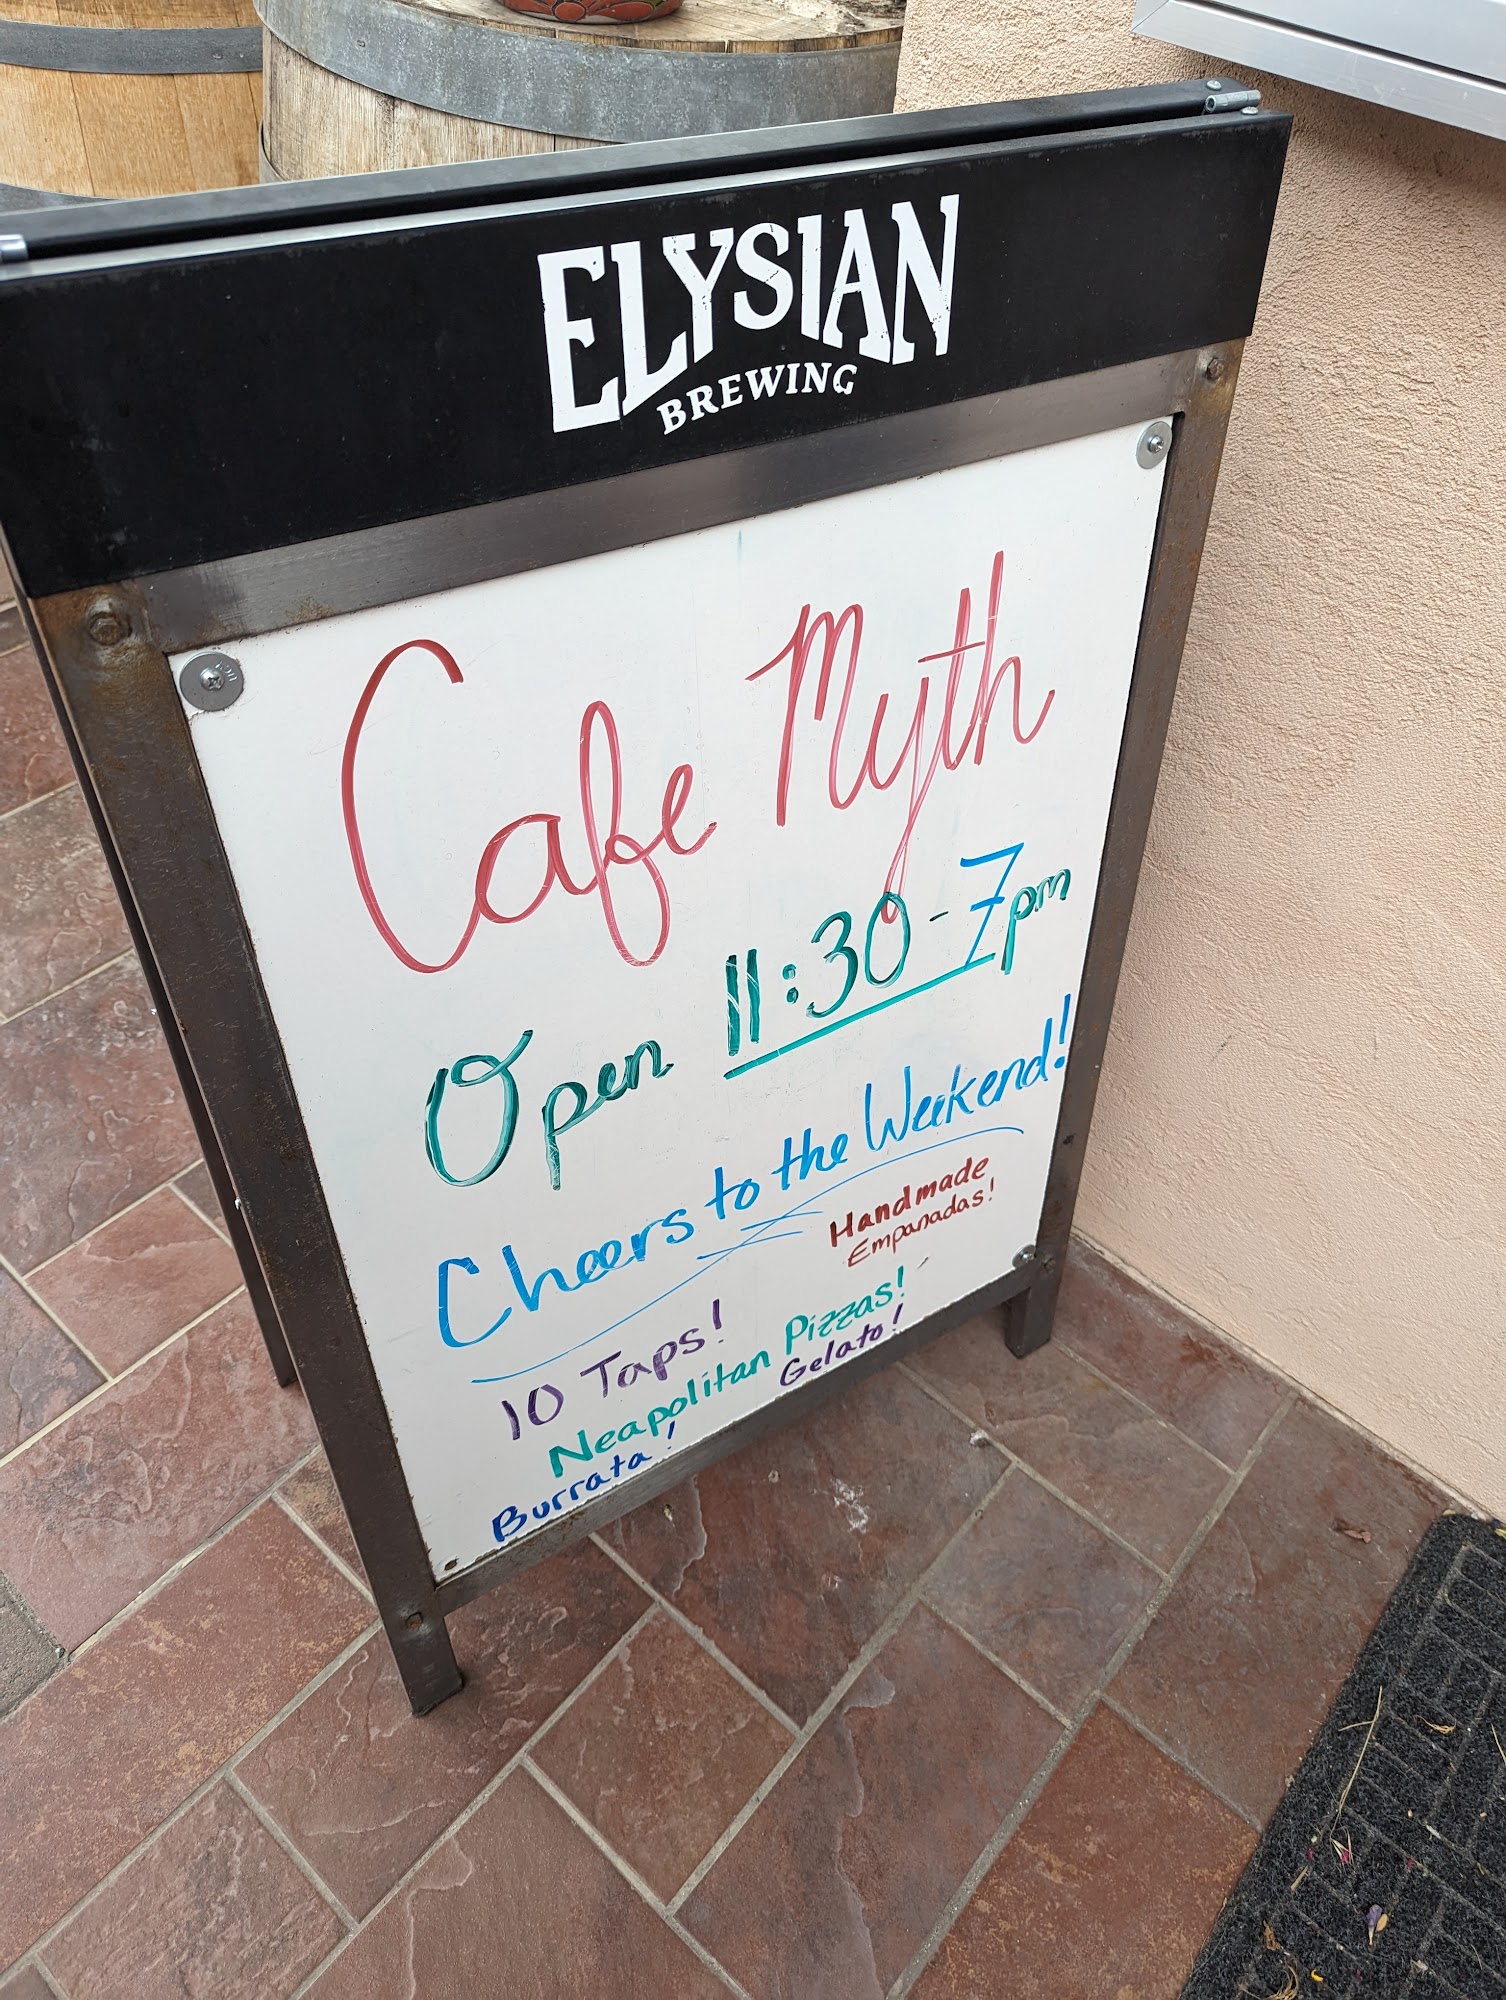 ELYSIAN
BREWING
Cafe Myth
Open 11:30-7pm
Cheers to the Weekend!
Handmade
Empanadas!
10 Taps!
Neapolitan Pizzas!
Gelato!
Burrata!